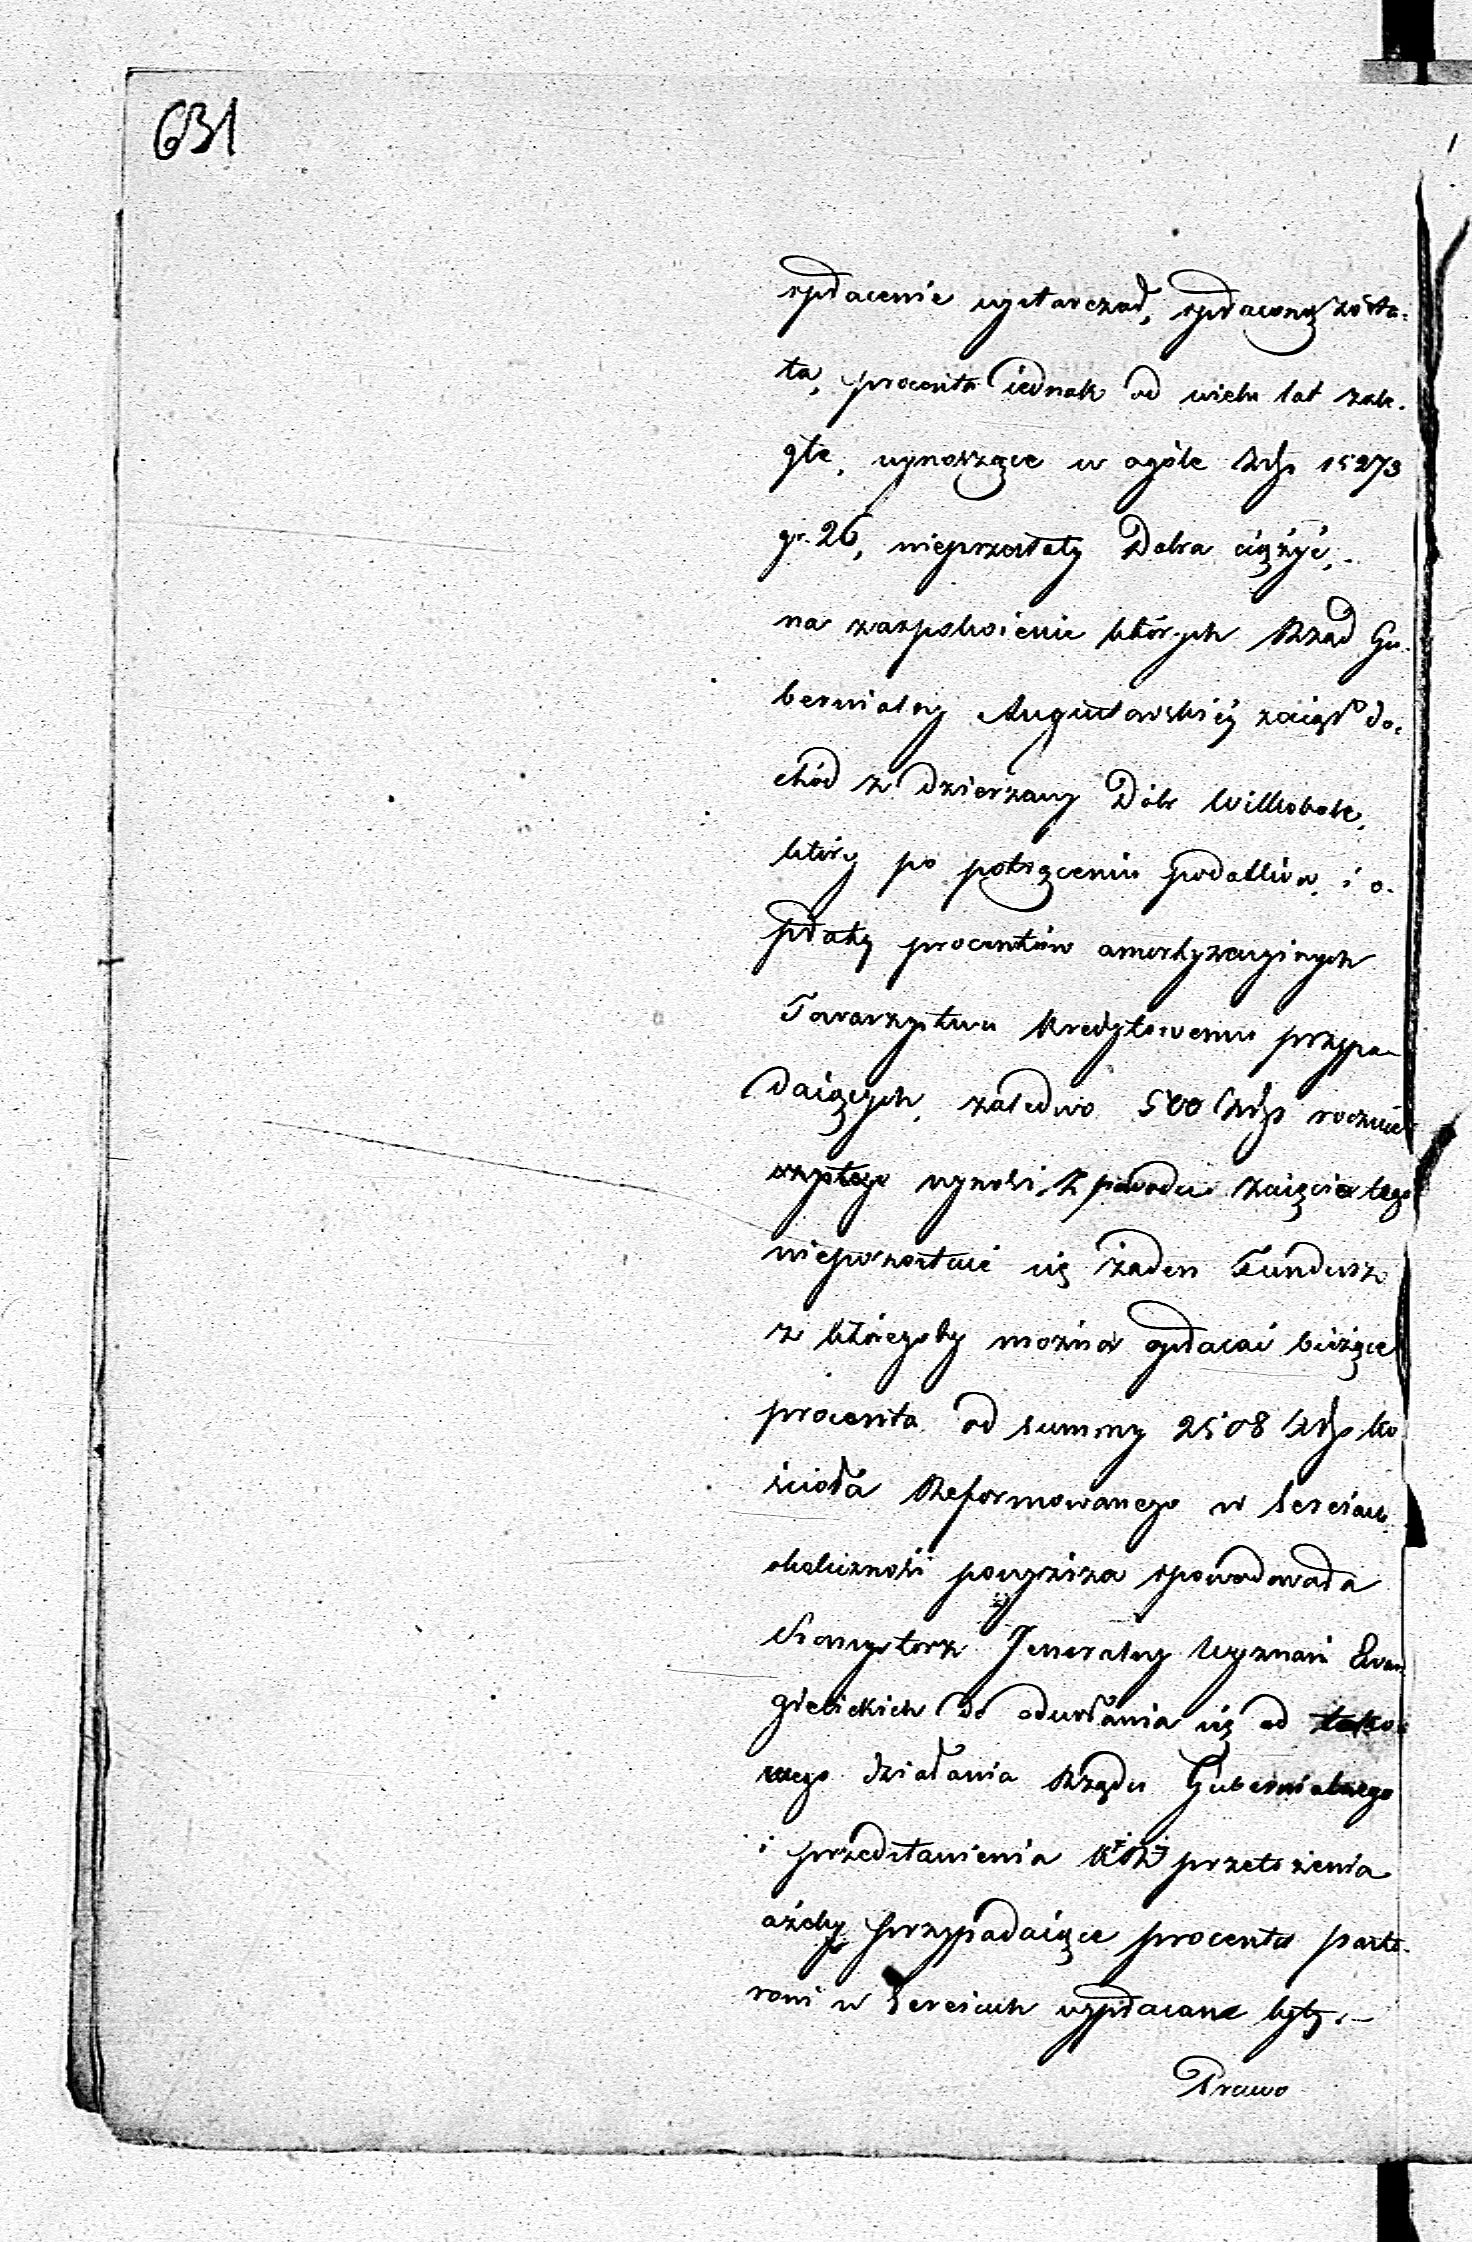 631
spłacenie wystarczał, spłaconą zosta-
ła, procenta iednak od wielu lat zale-
głe, wynoszące w ogóle Złp 15273
gr. 26, nieprzestały Dobra ciążyć,
na zaspokoienie których Rząd Gu-
bernialny Augustowskiy zaiął do-
chód z dzierżawy Dóbr Wilkobole,
który po potrąceniu podatków i o-
płaty procentów amortyzacyinych
Towarzystwu Kredytowemu przypa-
daiących, zaledwo 500 Złp rocznie
czystego wynosi, Z powodu zaięcia tego
niepozostaić się żaden Fundusz
z któregoby można opłacać bieżące
procenta od summy 2508 Złp Ko
ścioła Reformowanego w Sereiach
okoliczność powyższa spowodowała
Konsystorz Jeneralny Wyznań Ewan
gielickich do odwołania się od tako-
wego działania Rządu Gubernialnego
i przedstawienia przełożenia
ażeby przypadaiące procenta pasto-
rowi w Sereiach wypłacane były.—
Prawo